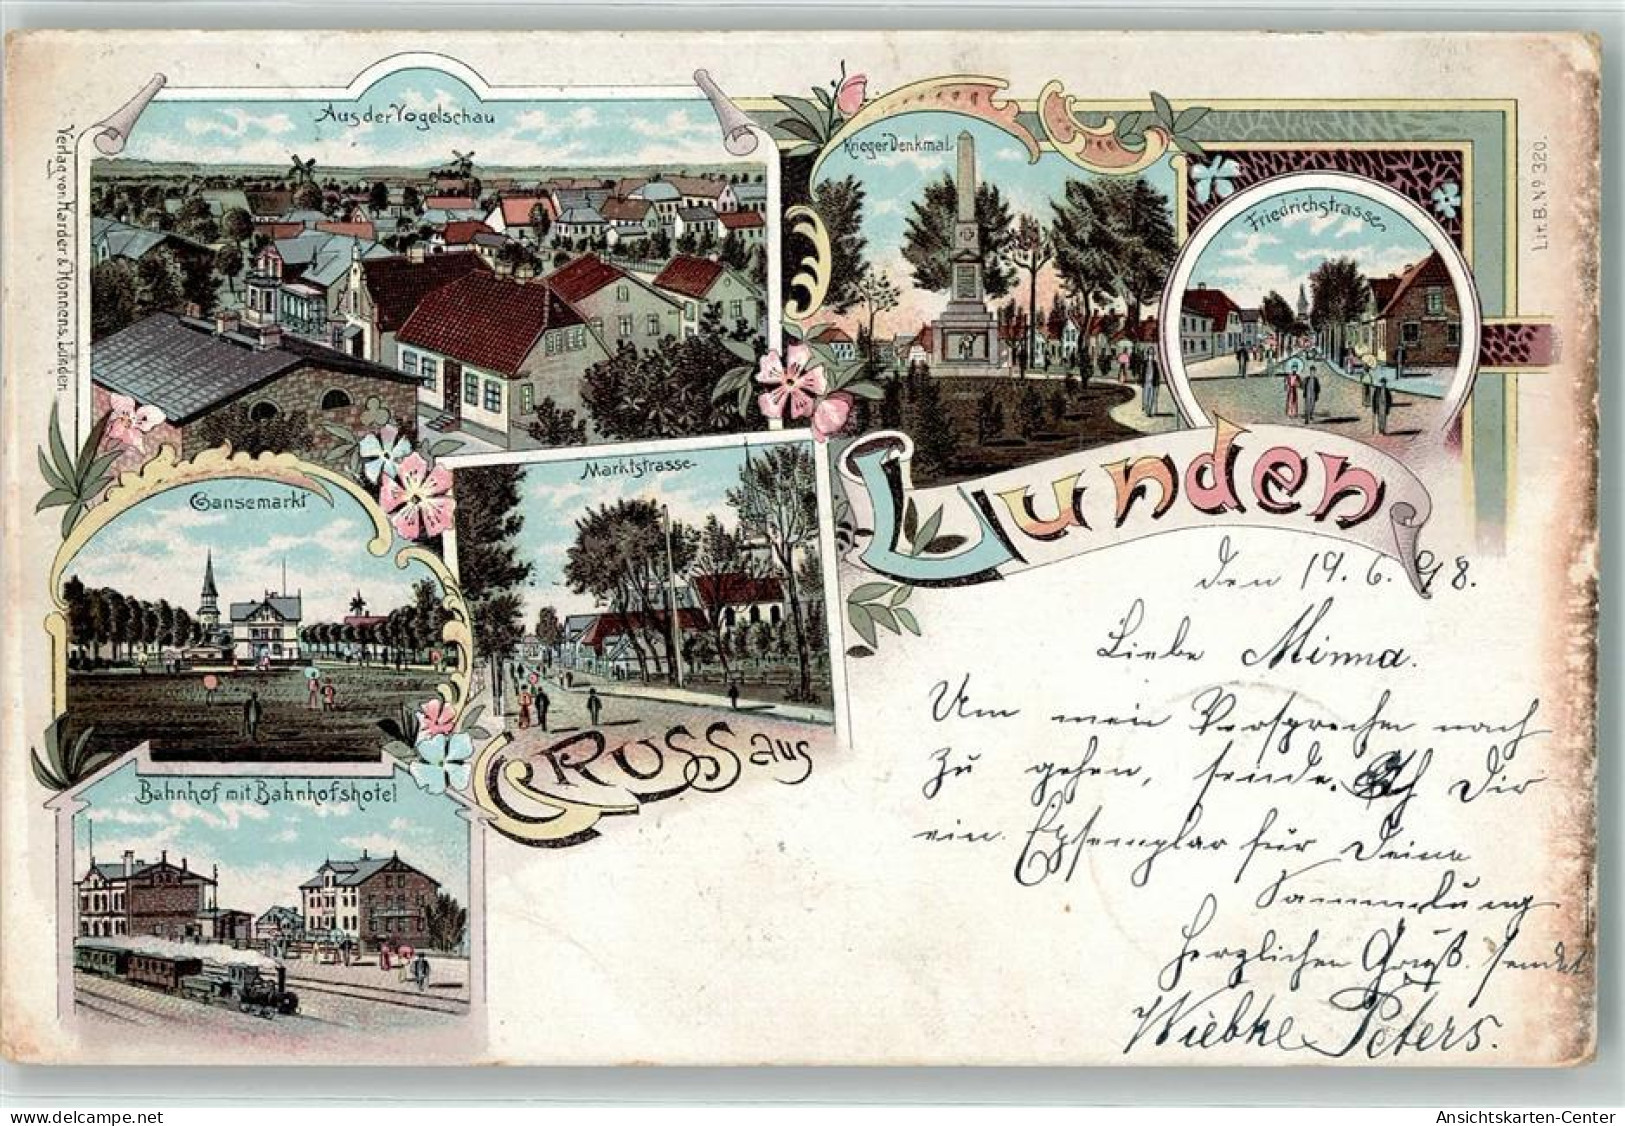 Aus der Vogelschau
Krieger Denkmal.
Friedrichstrasse
Verlag von Harder & Honnens, Lunden.
Lit. B. № 320.
Gansemarkt
Marktstrasse
Lunden
GRUSS aus
Bahnhof mit Bahnhofshotel
den 19. 6. 98.
Liebe Minna.
Um mein Versprechen nach
zu gehen, sende. Ich Dir
ein Exsemplar für Deine
Sammlung
Herzlichen Gruß. sendet
Wiebke Peters.
Ansichtskarten-Center